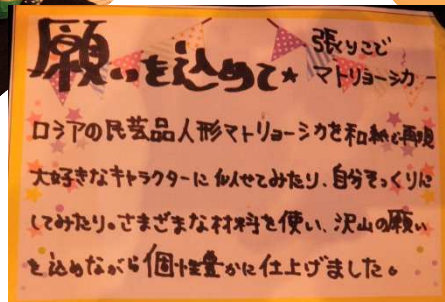 願いを込めて★
張りこで
マトリョーシカ
ロシアの民芸品人形マトリョーシカを和紙で再現
大好きなキャラクターに似せてみたり、自分そっくりに
してみたり。さまざまな材料を使い、沢山の願い
を込めながら個性豊かに仕上げました。